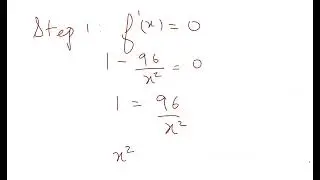 Step 1: f'(x) = 0
1 - 96/x² = 0
1 = 96/x²
x²